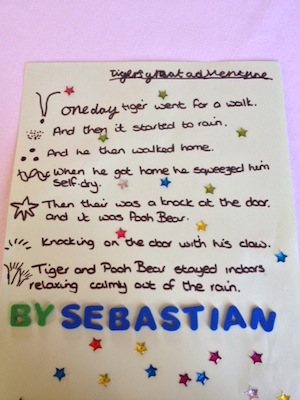 one day tiger went for a walk.
And then it started to rain.
And he then walked home.
When he got home he squeezed him
self dry.
Then their was a knock at the door.
and it was Pooh Bear.
Knocking on the door with his claw.
Tiger and Pooh Bear stayed indoors
relaxing calmly out of the rain.
BY SEBASTIAN